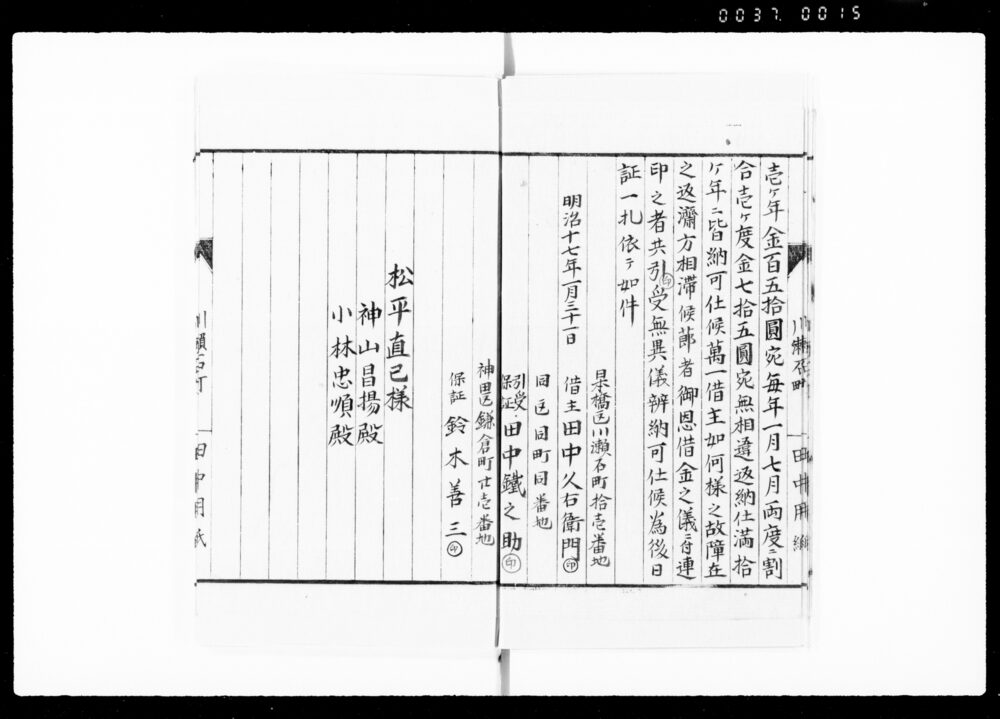 0037. 0015
川瀬石町 田中用紙
壱ヶ年金百五拾圓宛毎年一月七月両度ニ割
合壱ヶ度金七拾五圓宛無相違返納仕満拾
ヶ年ニ皆納可仕候萬一借主如何様之故障在
之返濟方相滞候節者御恩借金之儀ニ付連
印之者共引受無異儀辨納可仕候為後日
証一札依テ如件
明治十七年一月三十一日
呉橋区川瀬石町拾壱番地
借主田中久右衛門㊞
同区同町同番地
引受保証田中鐵之助㊞
神田区鎌倉町廿壱番地
保証 鈴木善三㊞
松平直己様
神山昌揚殿
小林忠順殿
川瀬石町 田中用紙